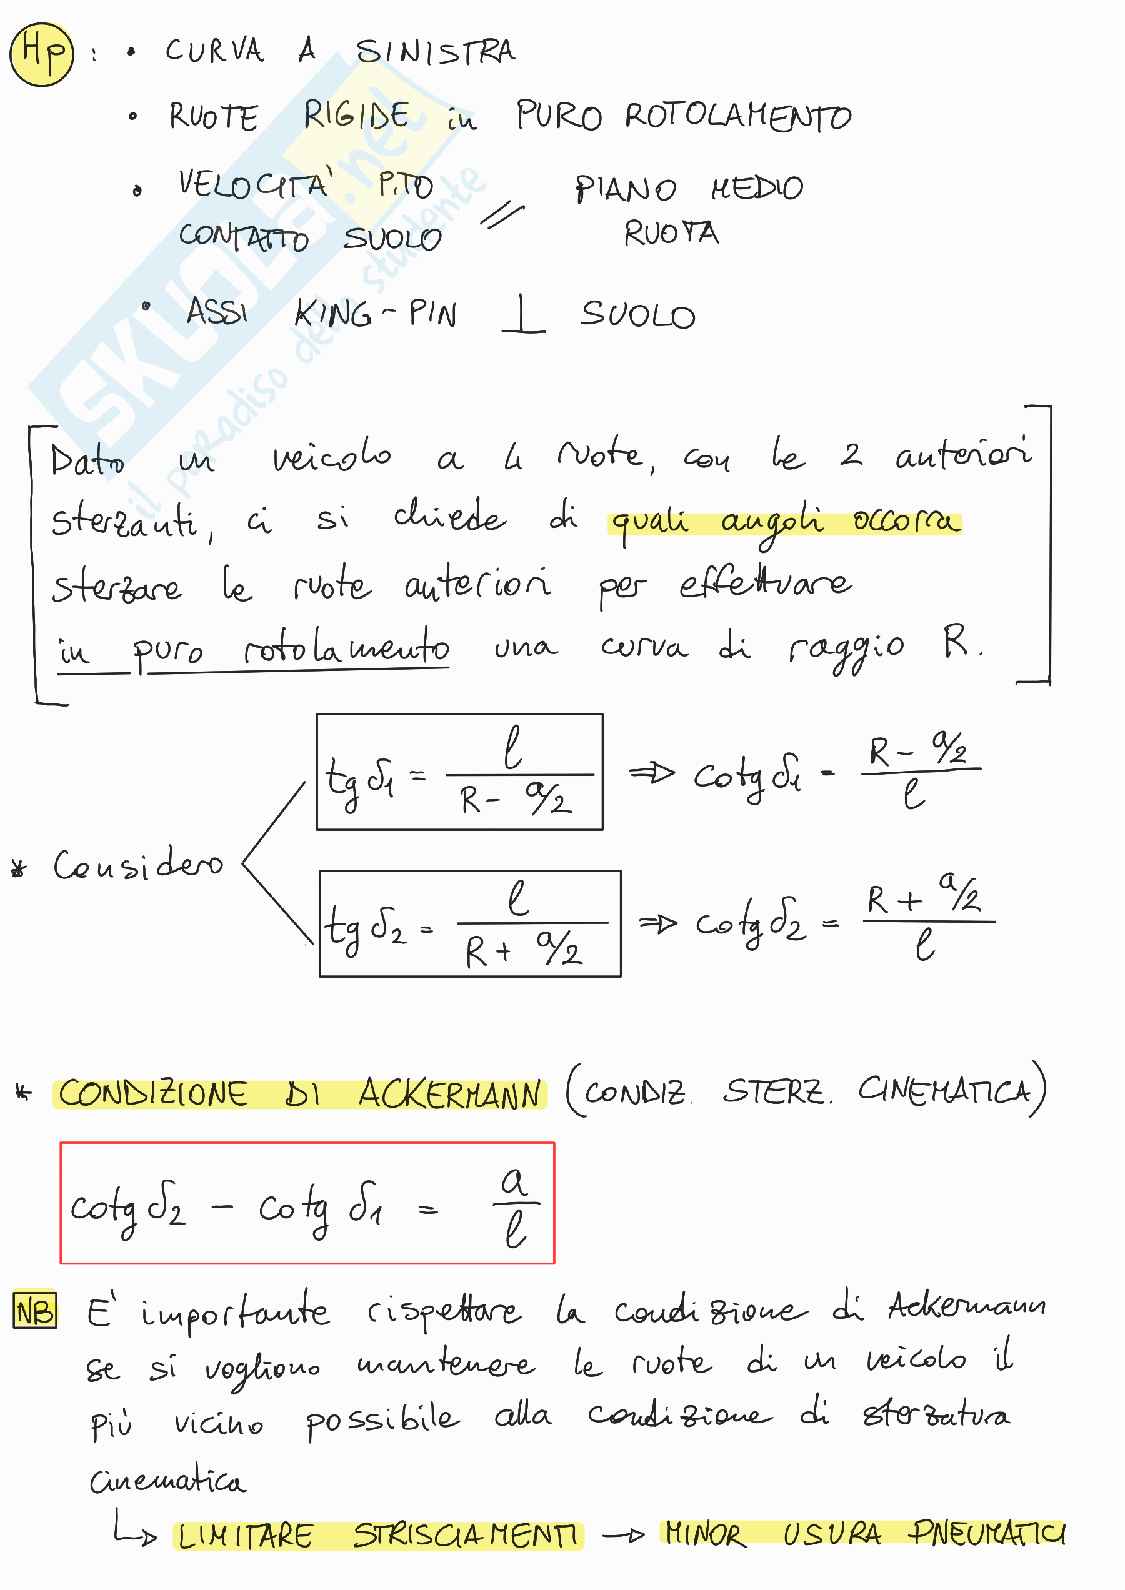 Hp : • CURVA A SINISTRA
• RUOTE RIGIDE in PURO ROTOLAMENTO
• VELOCITA' P.TO CONTATTO SUOLO // PIANO MEDIO RUOTA
• ASSI KING-PIN ⊥ SUOLO
SKUOLA.net
il paradiso dello studente
Dato un veicolo a 4 ruote, con le 2 anteriori
sterzanti, ci si chiede di quali angoli occorra
sterzare le ruote anteriori per effettuare
in puro rotolamento una curva di raggio R.
* Considero
tg δ1 = l / (R - a/2) ⇒ cotg δ1 = (R - a/2) / l
tg δ2 = l / (R + a/2) ⇒ cotg δ2 = (R + a/2) / l
* CONDIZIONE DI ACKERMANN (CONDIZ. STERZ. CINEMATICA)
cotg δ2 - cotg δ1 = a / l
NB E' importante rispettare la condizione di Ackermann
se si vogliono mantenere le ruote di un veicolo il
più vicino possibile alla condizione di sterzatura
cinematica
↳ LIMITARE STRISCIAMENTI → MINOR USURA PNEUMATICI